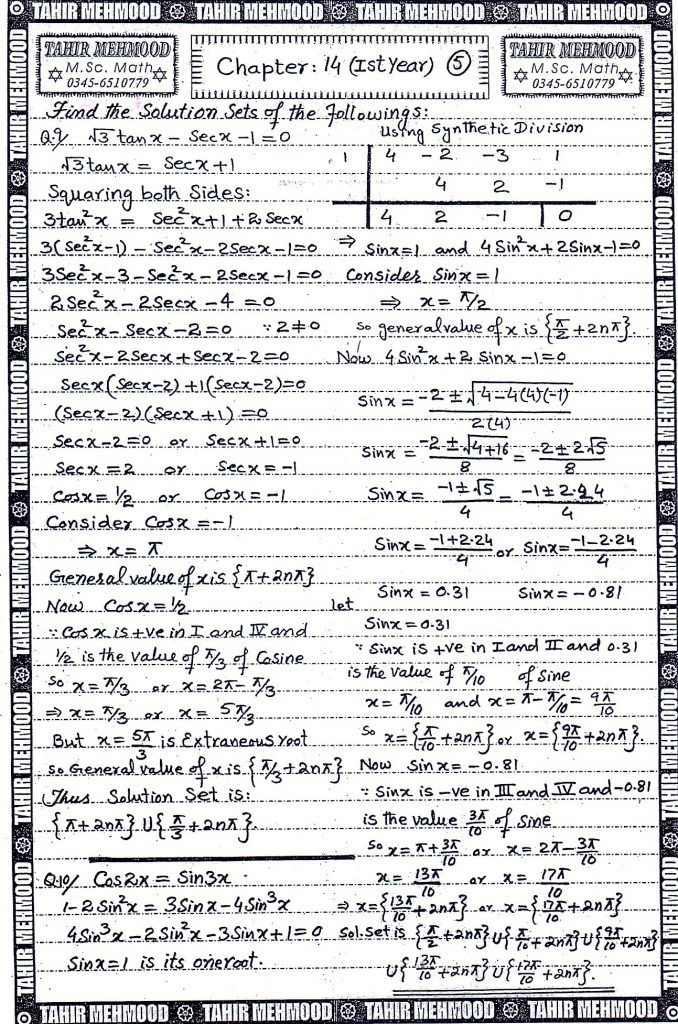 TAHIR MEHMOOD TAHIR MEHMOOD TAHIR MEHMOOD TAHIR MEHMOOD
TAHIR MEHMOOD
M.Sc. Math
0345-6510779
Chapter: 14 (Ist Year) 5
TAHIR MEHMOOD
M.Sc. Math
0345-6510779
Find the Solution Sets of the followings:
Q.9/ √3 tanx - Secx - 1 = 0
√3 tanx = Secx + 1
Squaring both Sides:
3tan²x = Sec²x + 1 + 2 Secx
3(Sec²x-1) - Sec²x - 2Secx - 1 = 0
3Sec²x - 3 - Sec²x - 2Secx - 1 = 0
2Sec²x - 2Secx - 4 = 0
Sec²x - Secx - 2 = 0 ∵ 2≠0
Sec²x - 2Secx + Secx - 2 = 0
Secx(Secx-2) + 1(Secx-2) = 0
(Secx-2)(Secx+1) = 0
Secx - 2 = 0 or Secx + 1 = 0
Secx = 2 or Secx = -1
Cosx = 1/2 or Cosx = -1
Consider Cosx = -1
⇒ x = π
General value of x is {π + 2nπ}
Now Cosx = 1/2
∵ Cosx is +ve in I and IV and
1/2 is the value of π/3 of Cosine
So x = π/3 or x = 2π - π/3
⇒ x = π/3 or x = 5π/3
But x = 5π/3 is Extraneous root
so General value of x is {π/3 + 2nπ}
Thus Solution Set is:
{π + 2nπ} ∪ {π/3 + 2nπ}.
Q.10/ Cos2x = Sin3x
1 - 2Sin²x = 3Sinx - 4Sin³x
4Sin³x - 2Sin²x - 3Sinx + 1 = 0
Sinx = 1 is its one root.
Using Synthetic Division
1 | 4 -2 -3 1
4 2 -1
4 2 -1 | 0
⇒ Sinx = 1 and 4Sin²x + 2Sinx - 1 = 0
Consider Sinx = 1
⇒ x = π/2
so general value of x is {π/2 + 2nπ}.
Now 4Sin²x + 2Sinx - 1 = 0
Sinx = -2 ± √4-4(4)(-1) / 2(4)
Sinx = -2 ± √4+16 / 8 = -2 ± 2√5 / 8
Sinx = -1 ± √5 / 4 = -1 ± 2.24 / 4
Sinx = -1+2.24 / 4 or Sinx = -1-2.24 / 4
Sinx = 0.31 Sinx = -0.81
let Sinx = 0.31
∵ Sinx is +ve in I and II and 0.31
is the value of π/10 of Sine
x = π/10 and x = π - π/10 = 9π/10
So x = {π/10 + 2nπ} or x = {9π/10 + 2nπ}.
Now Sinx = -0.81
∵ Sinx is -ve in III and IV and -0.81
is the value 3π/10 of Sine
So x = π + 3π/10 or x = 2π - 3π/10
x = 13π/10 or x = 17π/10
⇒ x = {13π/10 + 2nπ} or x = {17π/10 + 2nπ}
Sol. Set is {π/2 + 2nπ} ∪ {π/10 + 2nπ} ∪ {9π/10 + 2nπ}
∪ {13π/10 + 2nπ} ∪ {17π/10 + 2nπ}.
TAHIR MEHMOOD TAHIR MEHMOOD TAHIR MEHMOOD TAHIR MEHMOOD
TAHIR MEHMOOD TAHIR MEHMOOD TAHIR MEHMOOD TAHIR MEHMOOD TAHIR MEHMOOD TAHIR MEHMOOD
TAHIR MEHMOOD TAHIR MEHMOOD TAHIR MEHMOOD TAHIR MEHMOOD TAHIR MEHMOOD TAHIR MEHMOOD